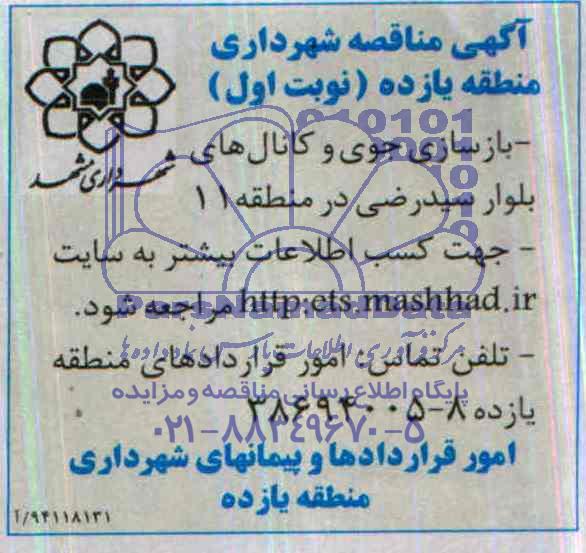 آگهی مناقصه شهرداری
منطقه یازده (نوبت اول)
شهرداری مشهد
-بازسازی جوی و کانال‌های
بلوار سیدرضی در منطقه ۱۱
- جهت کسب اطلاعات بیشتر به سایت
http:ets.mashhad.ir مراجعه شود.
- تلفن تماس: امور قراردادهای منطقه
یازده ۸-۳۸۶۹۴۰۰۵
امور قراردادها و پیمانهای شهرداری
منطقه یازده
۹۴۱۱۸۱۳۱/آ
پایگاه اطلاع رسانی مناقصه و مزایده
۰۲۱-۸۸۳۴۹۶۷۰-۵